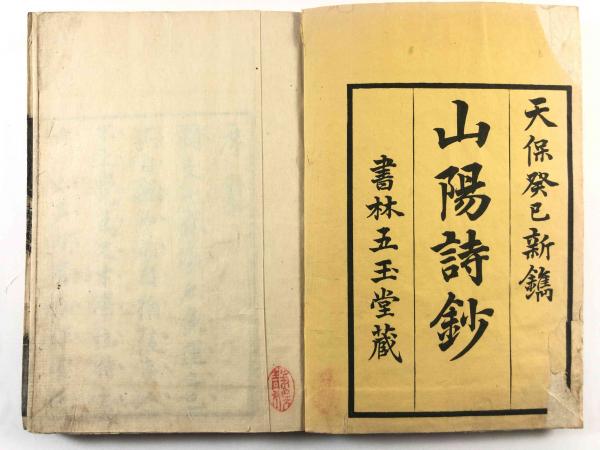 天保癸巳新鐫
山陽詩鈔
書林五玉堂藏